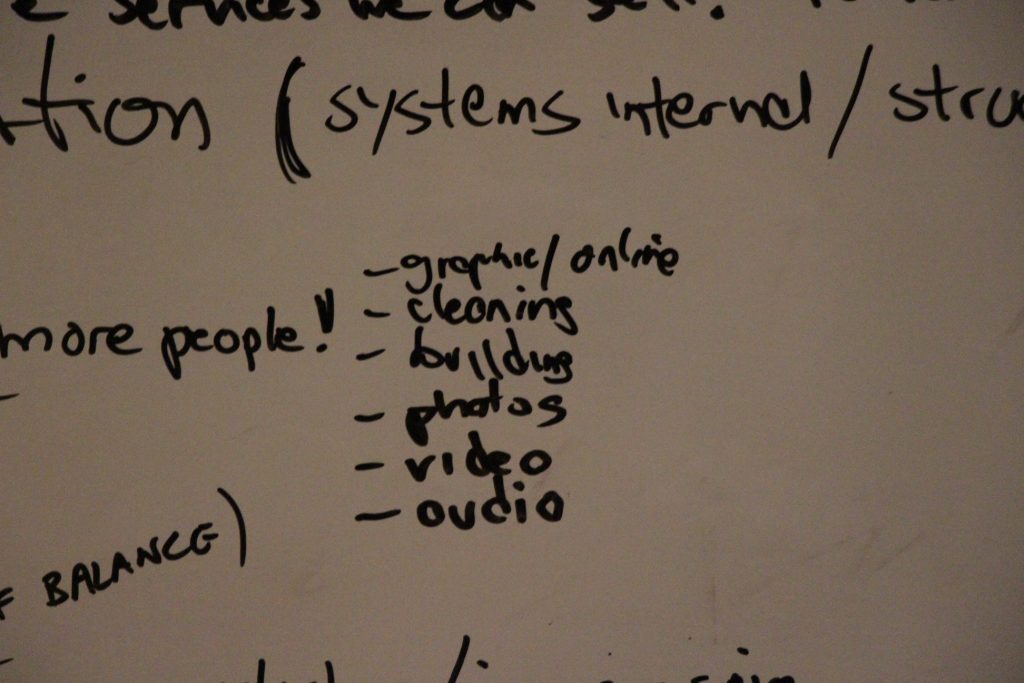 services we can sell?
tion (systems internal / struc
- graphic / online
- cleaning
more people!
- building
- photos
- video
- audio
BALANCE)